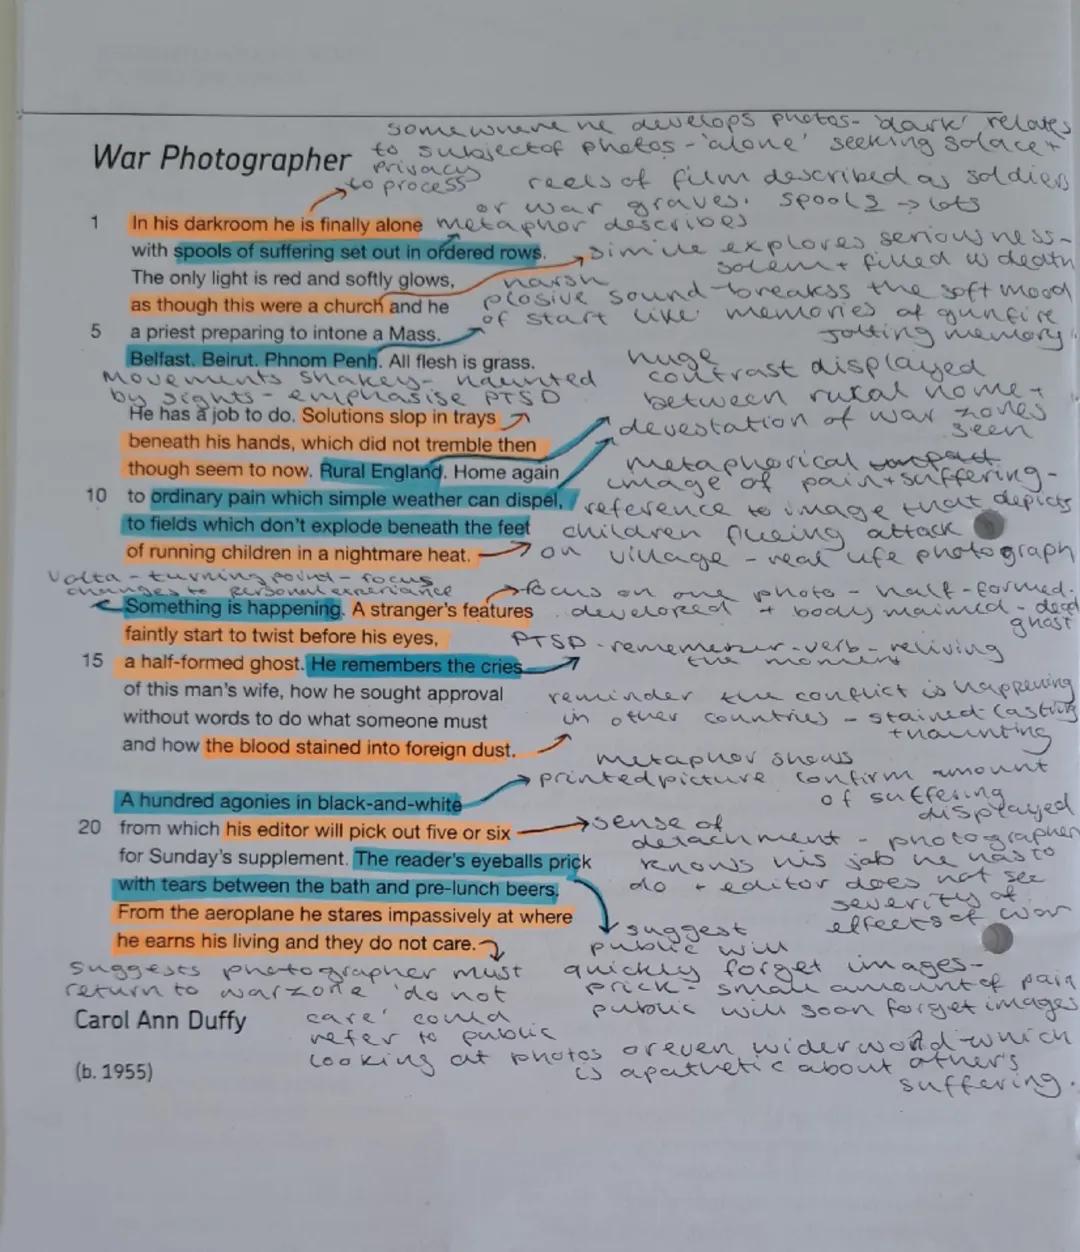 somewhere he develops photos - 'dark' relates
War Photographer
to subject of photos - 'alone' seeking solace +
privacy
to process
reels of film described as soldiers
or war graves. spools → lots
1 In his darkroom he is finally alone
metaphor describes
with spools of suffering set out in ordered rows.
simile explores seriousness -
solem + filled w death
The only light is red and softly glows,
as though this were a church and he
harsh
plosive sound breakss the soft mood
of start like memories of gunfire
jolting memory.
5 a priest preparing to intone a Mass.
Belfast. Beirut. Phnom Penh. All flesh is grass.
Movements shakey - haunted
by sights - emphasise PTSD
huge
contrast displayed
between rural home +
devestation of war zones
seen
He has a job to do. Solutions slop in trays
beneath his hands, which did not tremble then
though seem to now. Rural England. Home again
10 to ordinary pain which simple weather can dispel,
to fields which don't explode beneath the feet
of running children in a nightmare heat.
metaphorical
image of pain + suffering -
reference to image that depicts
children fleeing attack
on village - real life photograph
Volta - turning point - focus
changes to personal experiance
focus on one photo - half-formed.
developed + body maimed - dead
ghost
Something is happening. A stranger's features
faintly start to twist before his eyes,
15 a half-formed ghost. He remembers the cries
PTSD - rememezur - verb - reliving
the moment
of this man's wife, how he sought approval
without words to do what someone must
and how the blood stained into foreign dust.
reminder the conflict is happening
in other countries - stained - lasting
+ haunting
metaphor shows
printed picture confirm amount
of suffering
displayed
A hundred agonies in black-and-white
20 from which his editor will pick out five or six
for Sunday's supplement. The reader's eyeballs prick
with tears between the bath and pre-lunch beers.
From the aeroplane he stares impassively at where
he earns his living and they do not care.
sense of
detachment - photographer
knows his job he has to
do + editor does not see
severity of
effects of war
suggest
public will
quickly forget images -
prick - small amount of pain
public will soon forget images
suggests photographer must
return to warzone 'do not
care' could
refer to public
looking at photos or even wider world which
is apathetic about other's
suffering.
Carol Ann Duffy
(b. 1955)